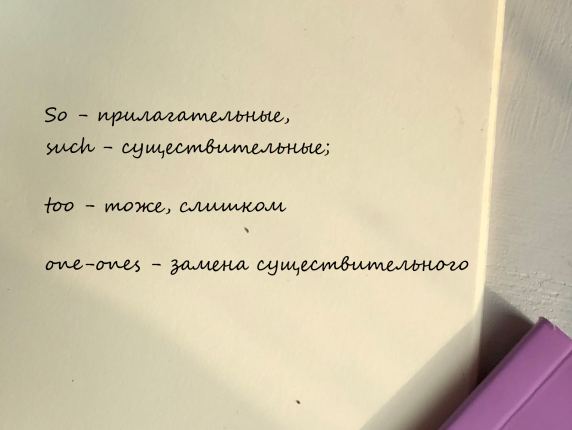 So - прилагательные,
such - существительные;
too - тоже, слишком
one-ones - замена существительного